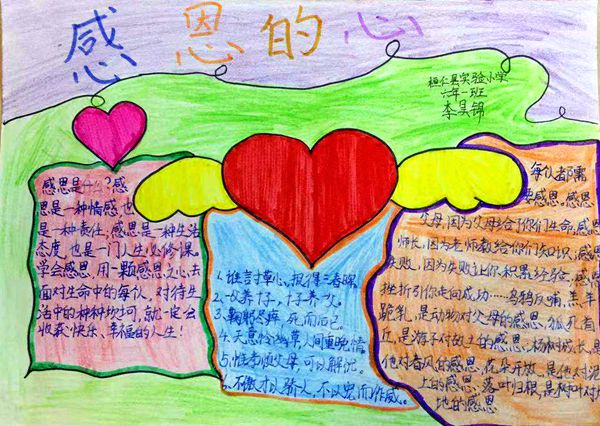 感恩的心
桓仁县实验小学
六年一班
李昊锦
感恩是什么?感
恩是一种情感,也
是一种责任;感恩是一种生活
态度,也是一门人生必修课。
学会感恩,用一颗感恩之心去
面对生命中的每一人,对待生
活中的种种坎坷,就一定会
收获快乐、幸福的人生!
1.谁言寸草心,报得三春晖
2.一仪养子,十子养父。
3.鞠躬尽瘁 死而后已。
4.天意怜幽草,人间重晚情
5.惟孝顺父母,可以解忧。
6.不傲才以骄人,不以宠而作威。
每个人都需
要感恩。感恩
父母,因为父母给予你们生命,感恩
师长,因为老师教给你们知识,感恩
失败,因为失败让你积累经验,感恩
挫折引你走向成功……乌鸦反哺,羔羊
跪乳,是动物对父母的感恩,狐死首
丘,是游子对故土的感恩,杨树成长,是
他对春风的感恩,花朵开放,是他对泥
土的感恩,落叶归根,是树叶对大
地的感恩